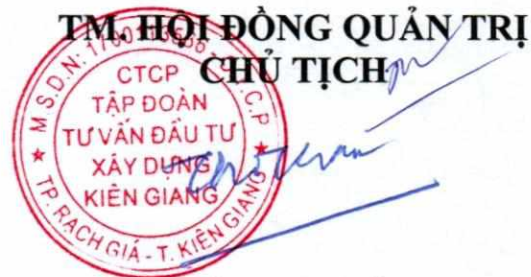 TM. HỘI ĐỒNG QUẢN TRỊ
CHỦ TỊCH
M.S.D.N:
C.P
CTCP
TẬP ĐOÀN
TƯ VẤN ĐẦU TƯ
XÂY DỰNG
KIÊN GIANG
TP. RẠCH GIÁ - T. KIÊN GIANG